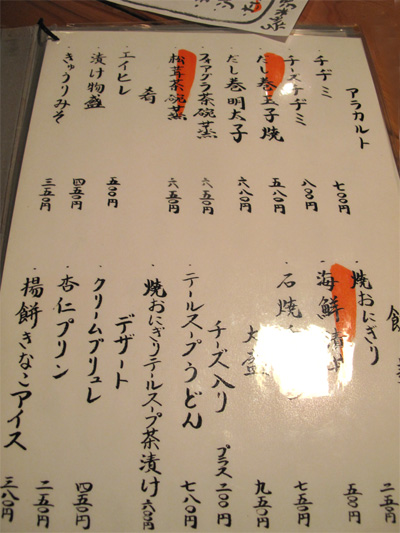 アラカルト
・チヂミ 七〇〇円
・チーズチヂミ 八〇〇円
・だし巻玉子焼 五八〇円
・だし巻明太子 六八〇円
・フォアグラ茶碗蒸 六五〇円
・松茸茶碗蒸 六五〇円
肴
・エイヒレ 五〇〇円
・漬け物盛 四五〇円
・きゅうりみそ 三五〇円
・焼おにぎり 二五〇円
・海鮮 五〇〇円
・石焼 七五〇円
大盛 九五〇円
チーズ入り プラス二〇〇円
・テールスープうどん 七八〇円
・焼おにぎりテールスープ茶漬け 六〇〇円
デザート
・クリームブリュレ 四五〇円
・杏仁プリン 二五〇円
・揚餅きなこアイス 三八〇円